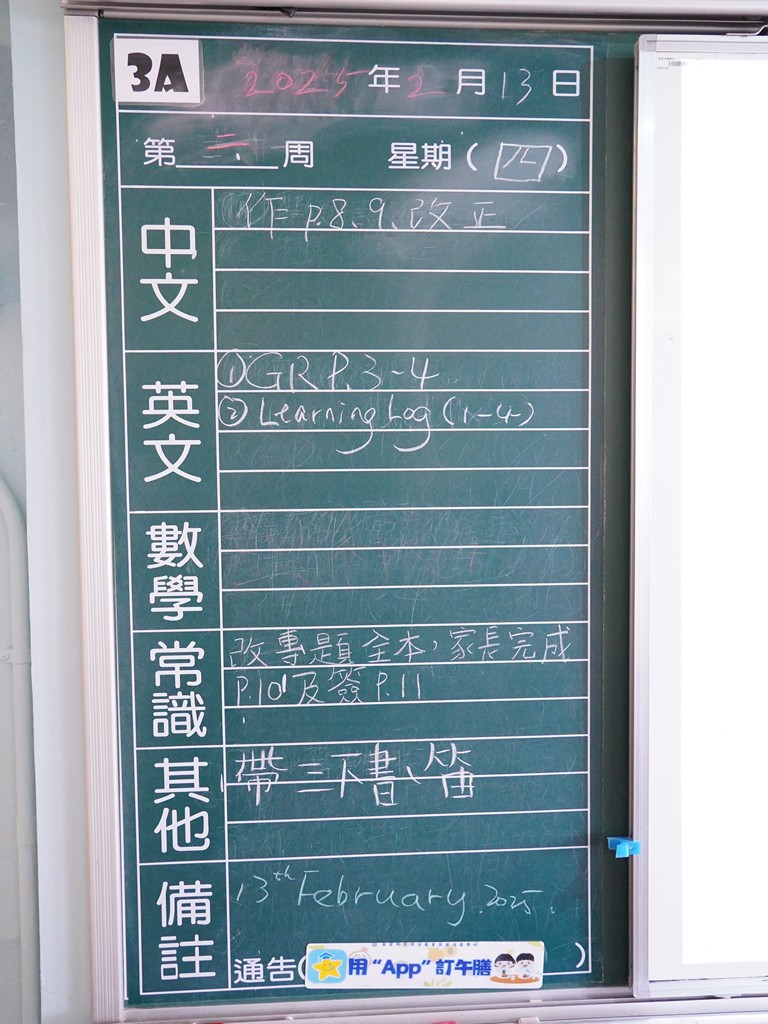 3A
2025年2月13日
第二周 星期(四)
中文
作 p.8、9、改正
英文
①GR P.3-4
②Learning Log (1-4)
數學
常識
改專題全本,家長完成
P.10及簽P.11
其他
帶三下書、笛
備註
13th February, 2025.
通告( )
用“App”訂午膳